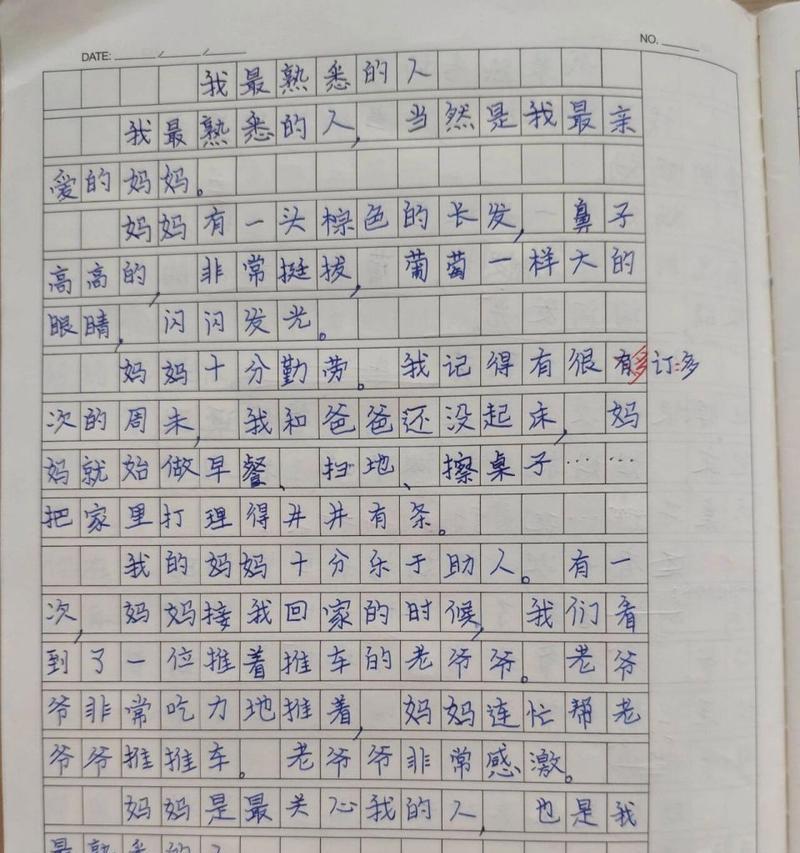 DATE: NO.
我最熟悉的人
我最熟悉的人，当然是我最亲
爱的妈妈。
妈妈有一头棕色的长发，鼻子
高高的，非常挺拔，葡萄一样大的
眼睛，闪闪发光。
妈妈十分勤劳。我记得有很有多 订:多
次的周末，我和爸爸还没起床，妈
妈就始做早餐、扫地、擦桌子……
把家里打理得井井有条。
我的妈妈十分乐于助人。有一
次，妈妈接我回家的时候，我们看
到了一位推着推车的老爷爷。老爷
爷非常吃力地推着，妈妈连忙帮老
爷爷推推车。老爷爷非常感激。
妈妈是最关心我的人，也是我
最熟悉的人